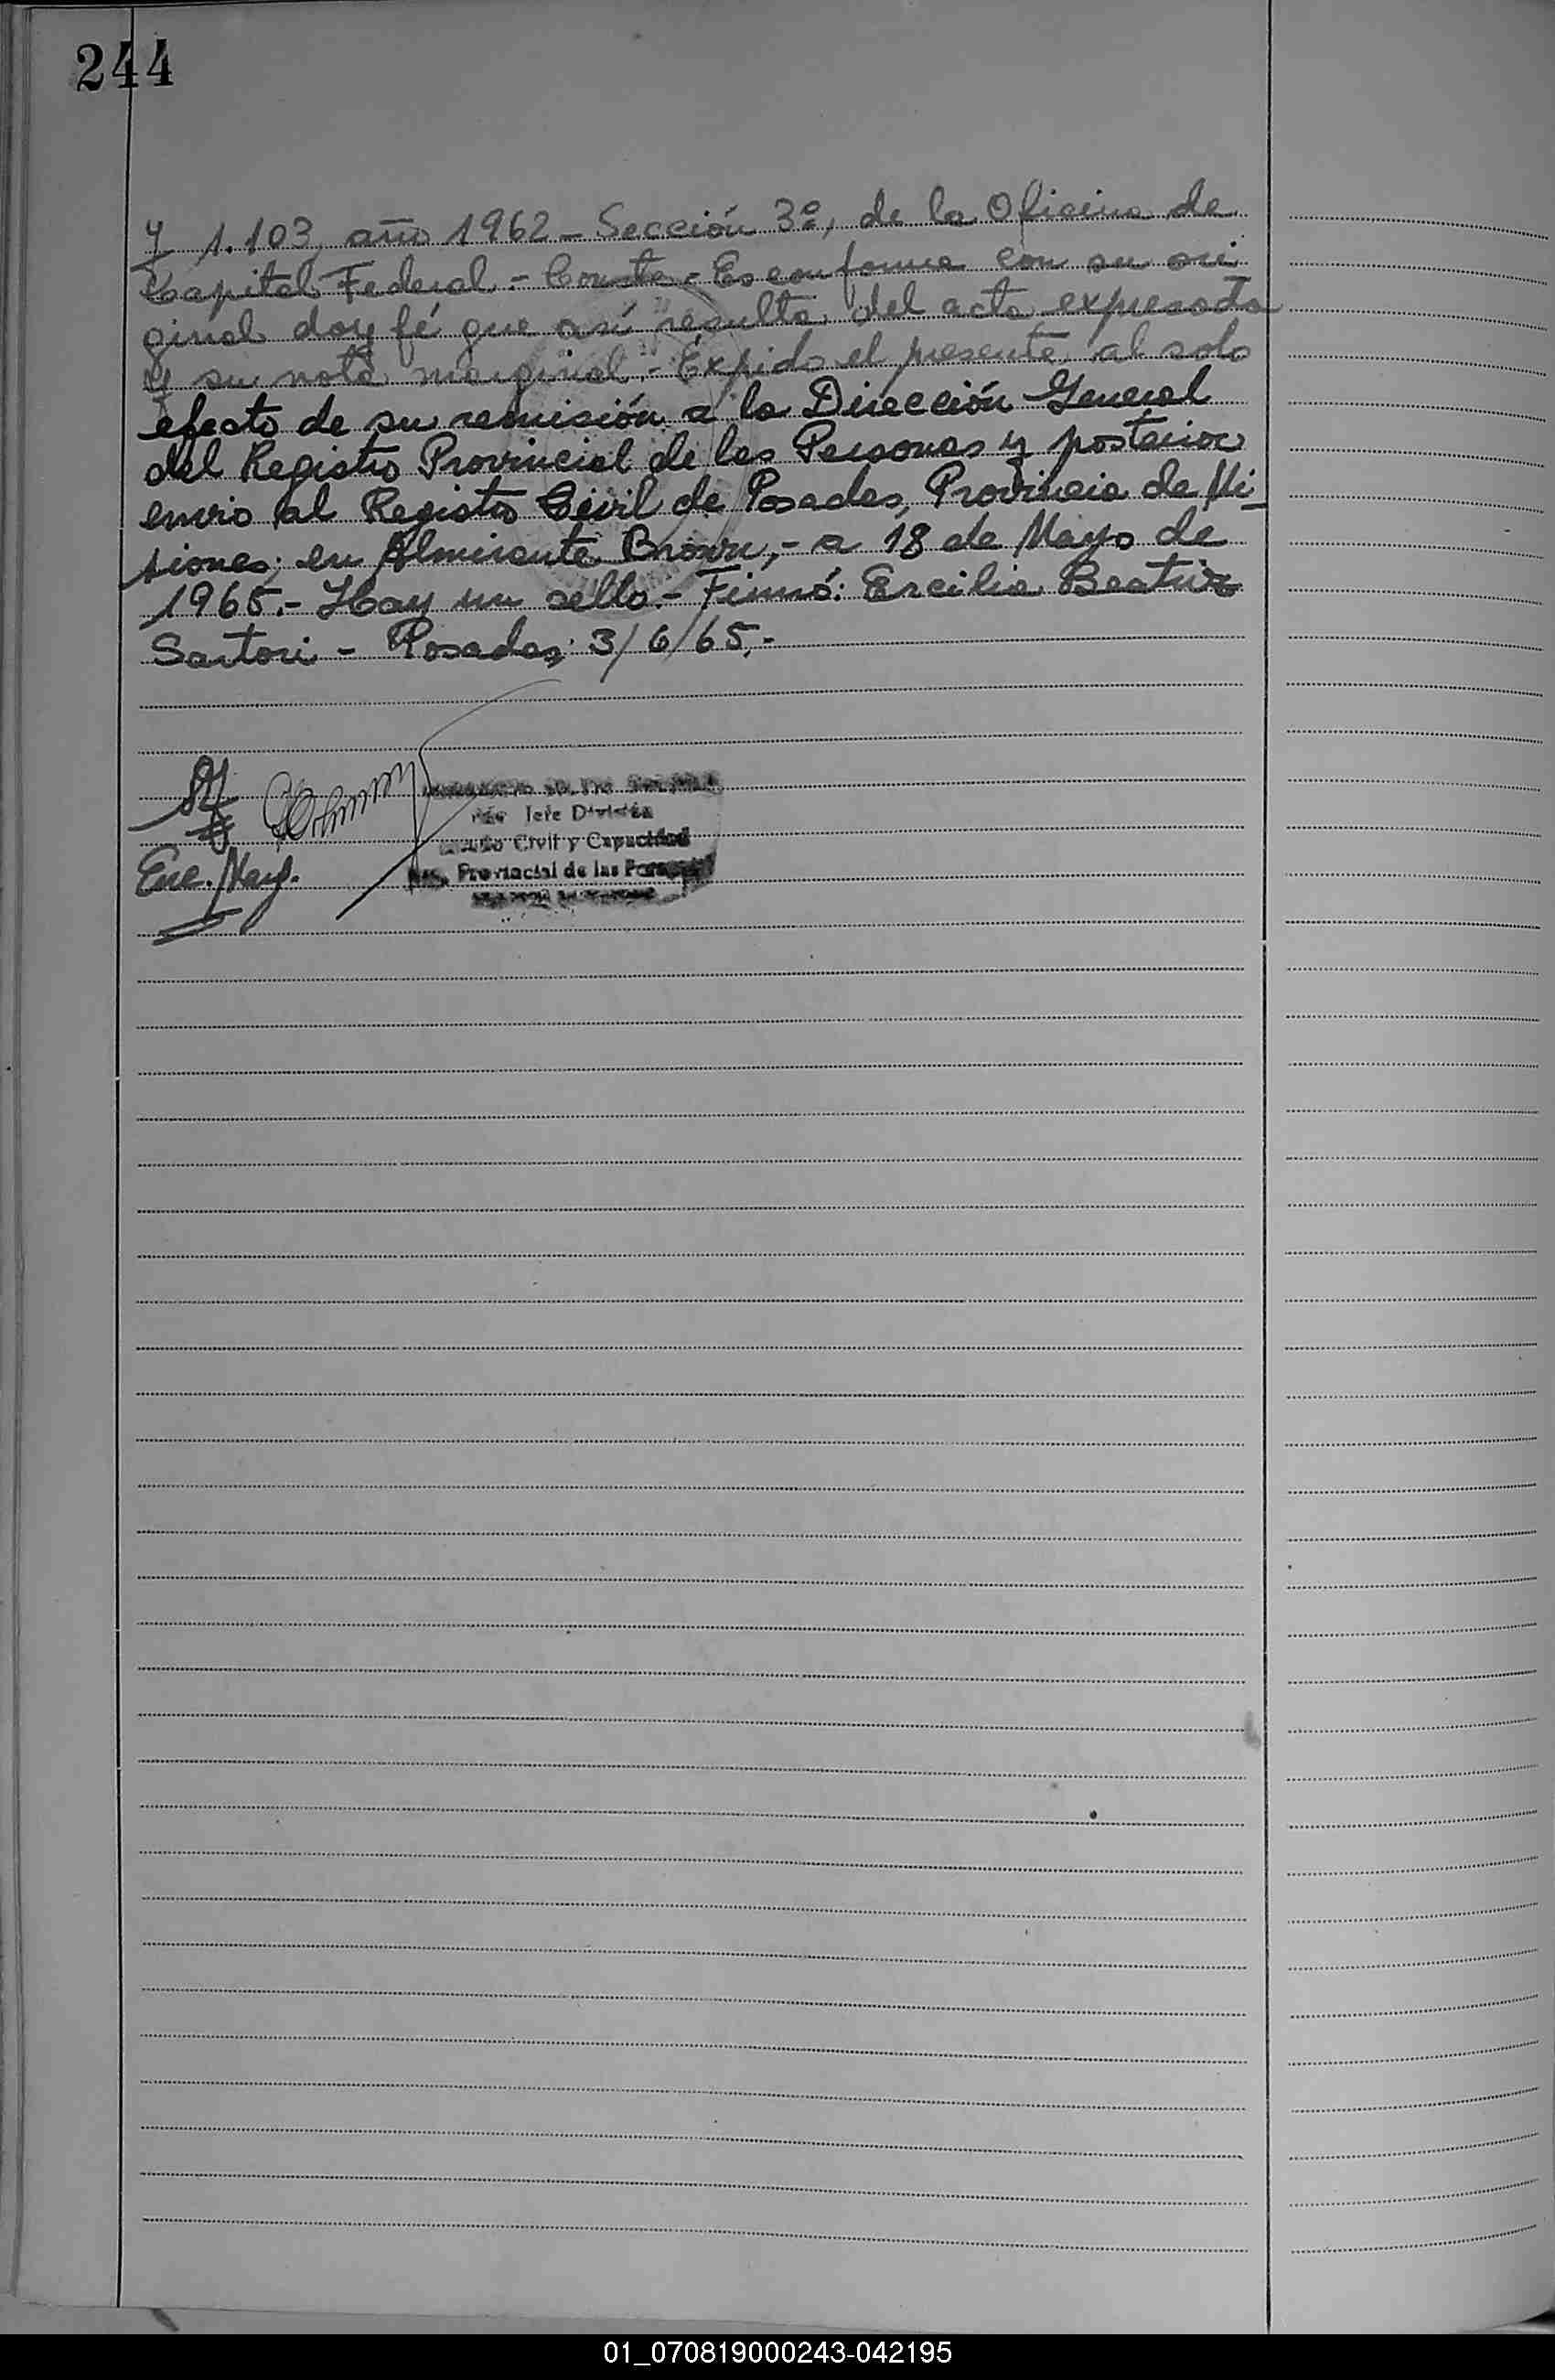 244
y 1.103, año 1962 - Sección 3º, de la Oficina de
Capital Federal.- Conste.- Es conforme con su ori
ginal doy fé que así resulta del acta expresada
y su nota marginal.- Expido el presente al solo
efecto de su remisión a la Dirección General
del Registro Provincial de las Personas y posterior
envio al Registro Civil de Posadas, Provincia de Mi-
siones; en Almirante Brown,- a 18 de Mayo de
1965.- Hay un sello.- Firmó: Ercilia Beatriz
Sartori - Posadas: 3/6/65.-
Jefe División
Civil y Capacidad
Provincial de las Personas
Enc. Marg.
01_070819000243-042195